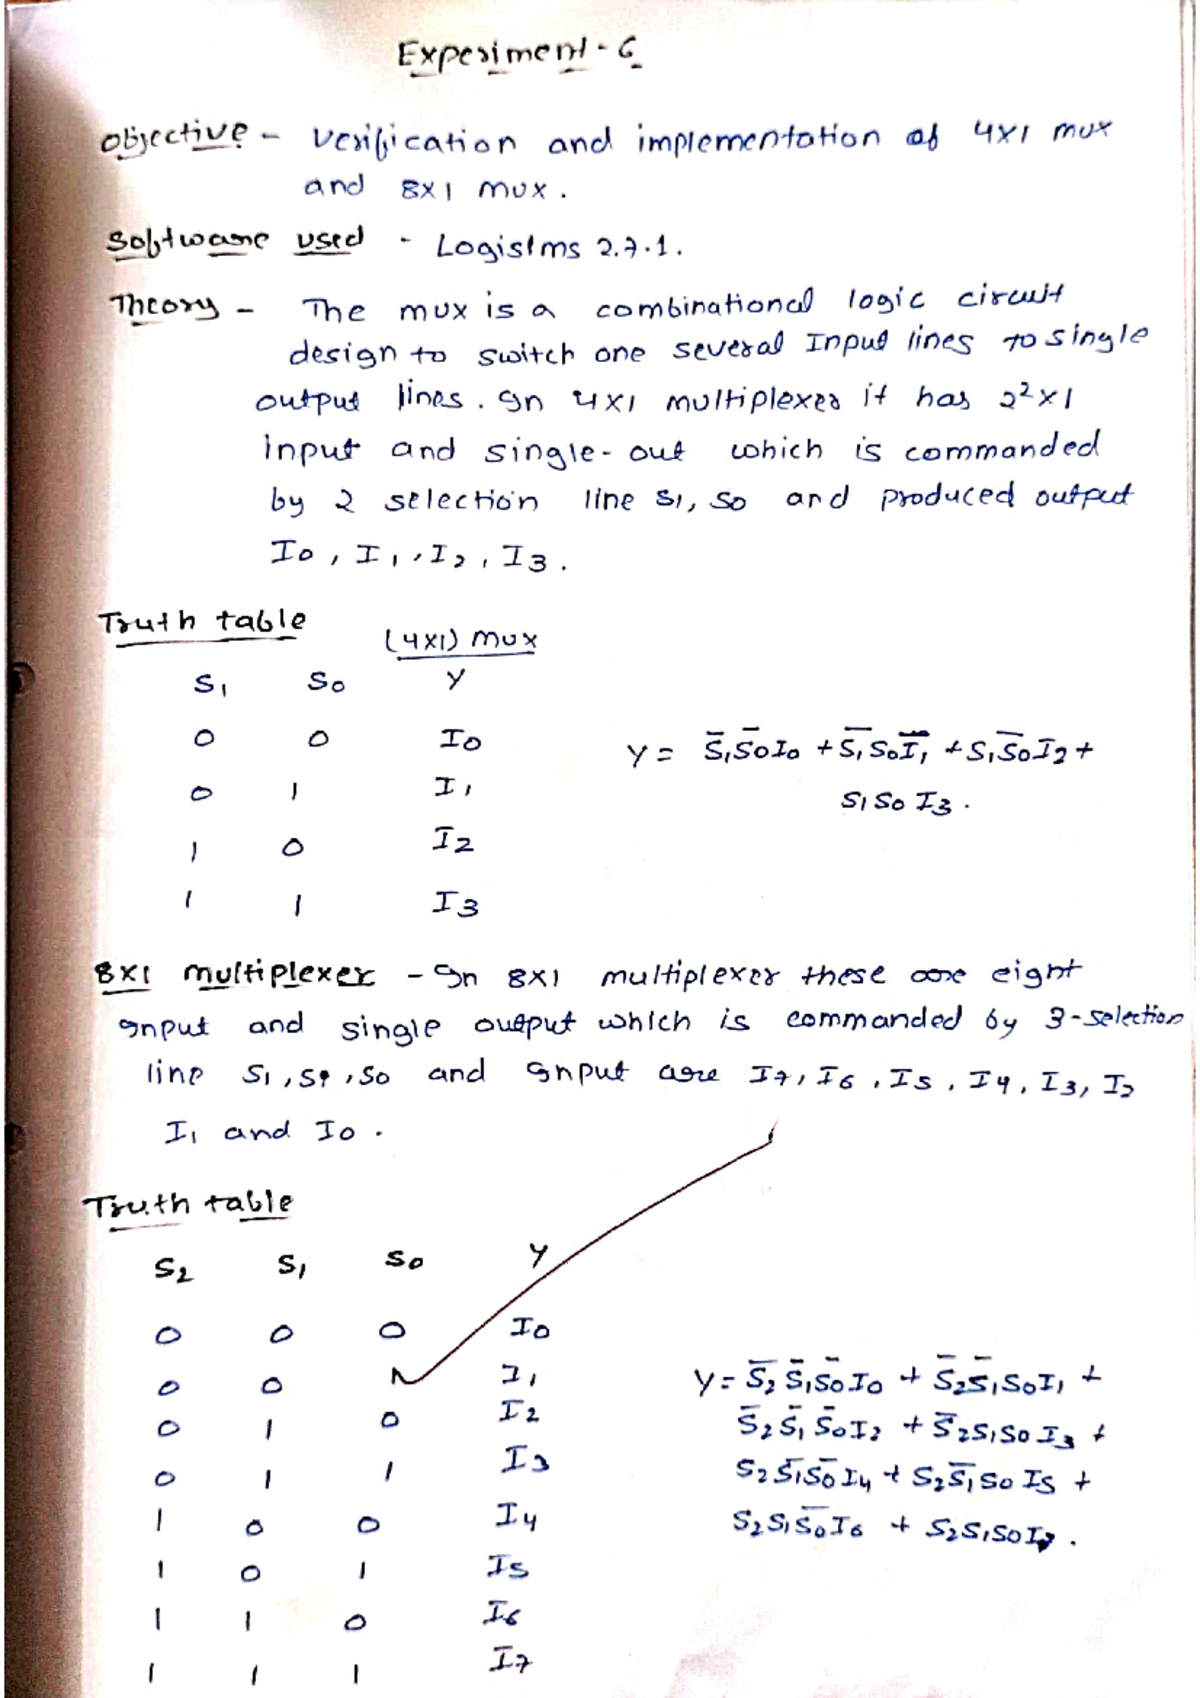 Experiment - 6
Objective - Verification and implementation of 4x1 mux
and 8x1 mux.
Software used - Logisims 2.7.1.
Theory - The mux is a combinational logic circuit
design to switch one several Input lines to single
output lines. In 4x1 multiplexer it has 2²x1
input and single-out which is commanded
by 2 selection line S1, S0 and produced output
I0, I1, I2, I3.
Truth table
(4x1) mux
S1 S0 Y
0 0 I0
0 1 I1
1 0 I2
1 1 I3
Y = S̅1S̅0I0 + S̅1S0I̅1 + S1S̅0I2 +
S1S0I3.
8x1 multiplexer - In 8x1 multiplexer these are eight
Input and single output which is commanded by 3-selection
line S1, S1, S0 and Input are I7, I6, I5, I4, I3, I2
I1 and I0.
Truth table
S2 S1 S0 Y
0 0 0 I0
0 0 1 I1
0 1 0 I2
0 1 1 I3
1 0 0 I4
1 0 1 I5
1 1 0 I6
1 1 1 I7
Y = S̅2S̅1S̅0I0 + S̅2S̅1S0I1 +
S̅2S̅1S̅0I2 + S̅2S1S0I3 +
S2S̅1S̅0I4 + S2S̅1S0I5 +
S2S1S̅0I6 + S2S1S0I7.